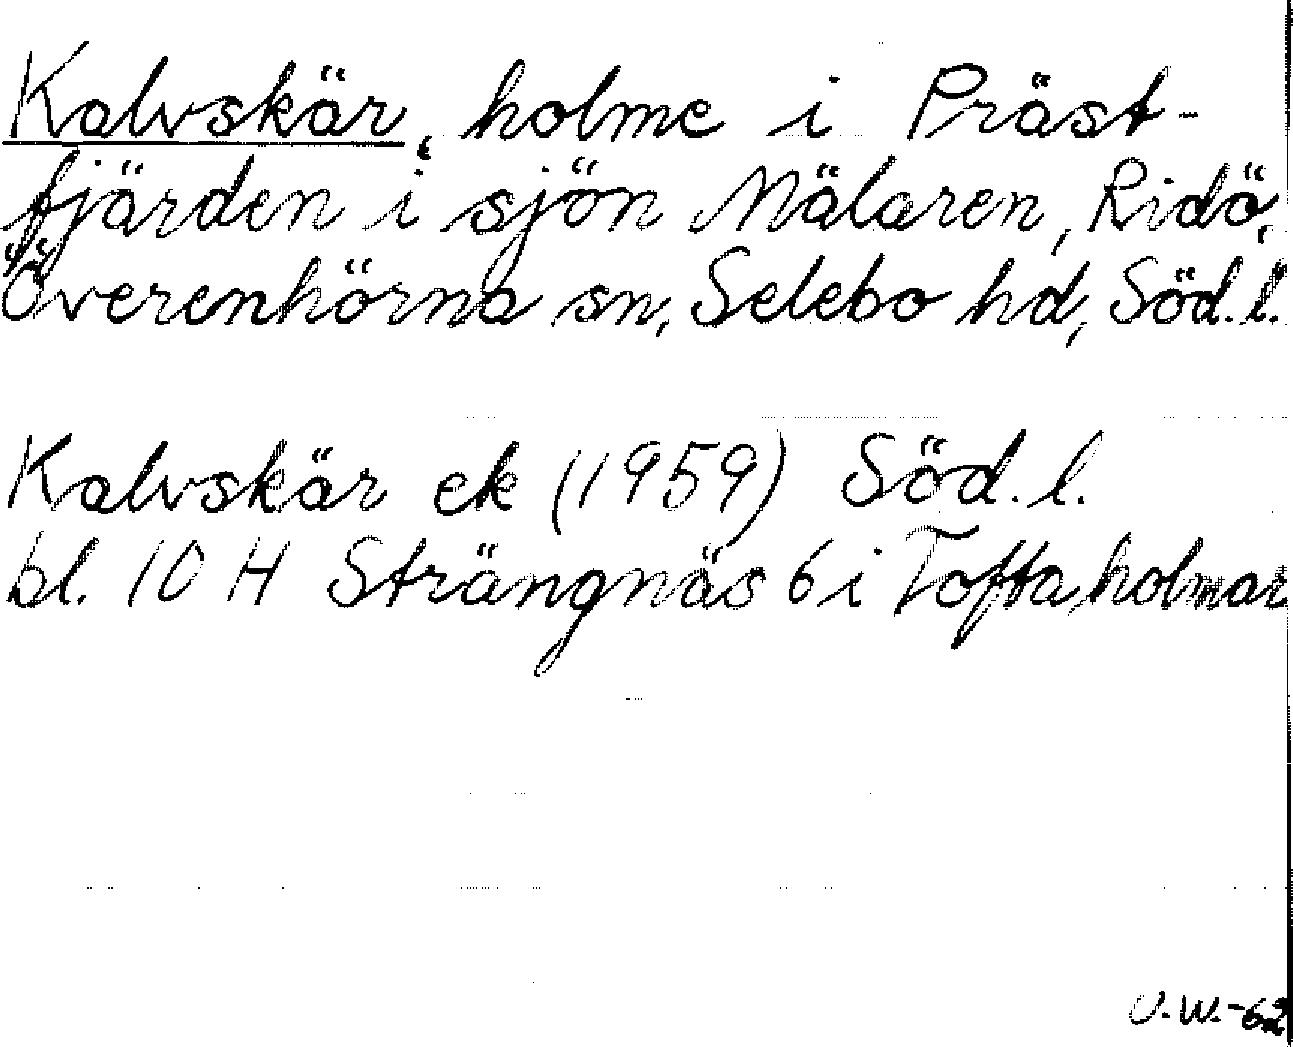 Kalvskär, holme i Präst-
fjärden i sjön Mälaren, Ridö,
Överenhörna sn, Selebo hd, Söd.l.
Kalvskär ek (1959) Söd.l.
bl. 10 H Strängnäs 6 i Toftaholmar
U.W.-62